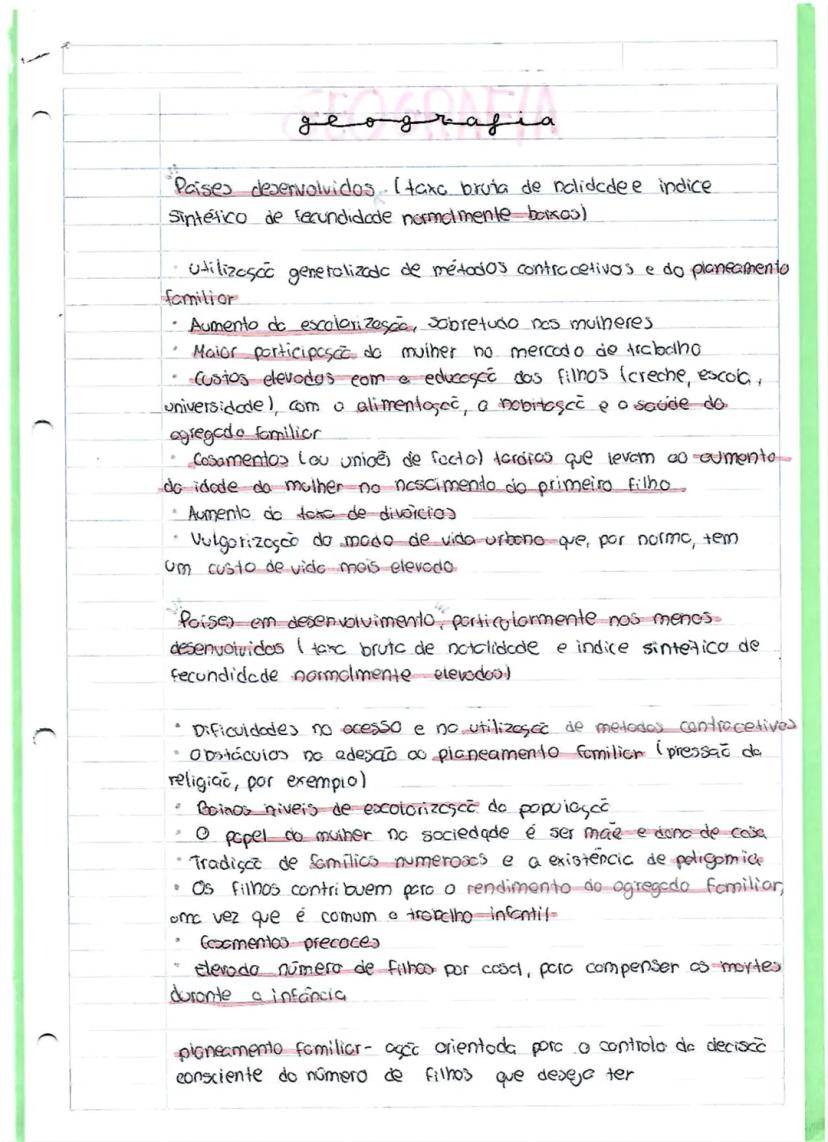 geografia
"Países desenvolvidos" (taxa bruta de natalidade e indice
sintético de fecundidade normalmente baixos)
• Utilização generalizada de métodos contracetivos e do planeamento
familiar
• Aumento da escolarização, sobretudo nas mulheres
• Maior participação da mulher no mercado de trabalho
• Custos elevados com a educação dos filhos (creche, escola,
universidade), com a alimentação, a habitação e a saúde do
agregado familiar
• Casamentos (ou uniões de facto) tardios que levam ao aumento
da idade da mulher no nascimento do primeiro filho
• Aumento da taxa de divórcios
• Vulgarização do modo de vida urbano que, por norma, tem
um custo de vida mais elevado
"Países em desenvolvimento", particularmente nos menos
desenvolvidos (taxa bruta de natalidade e indice sintético de
fecundidade normalmente elevados)
• Dificuldades no acesso e na utilização de metodos contracetivos
• Obstáculos na adesão ao planeamento familiar (pressão da
religião, por exemplo)
• Baixos niveis de escolarização da população
• O papel da mulher na sociedade é ser mãe e dona de casa
• Tradição de famílias numerosas e a existência de poligamia
• Os filhos contribuem para o rendimento do agregado familiar,
uma vez que é comum o trabalho infantil
• Casamentos precoces
• Elevado número de filhos por casal, para compensar as mortes
durante a infância
planeamento familiar- ação orientada para o controlo da decisão
consciente do número de filhos que deseja ter